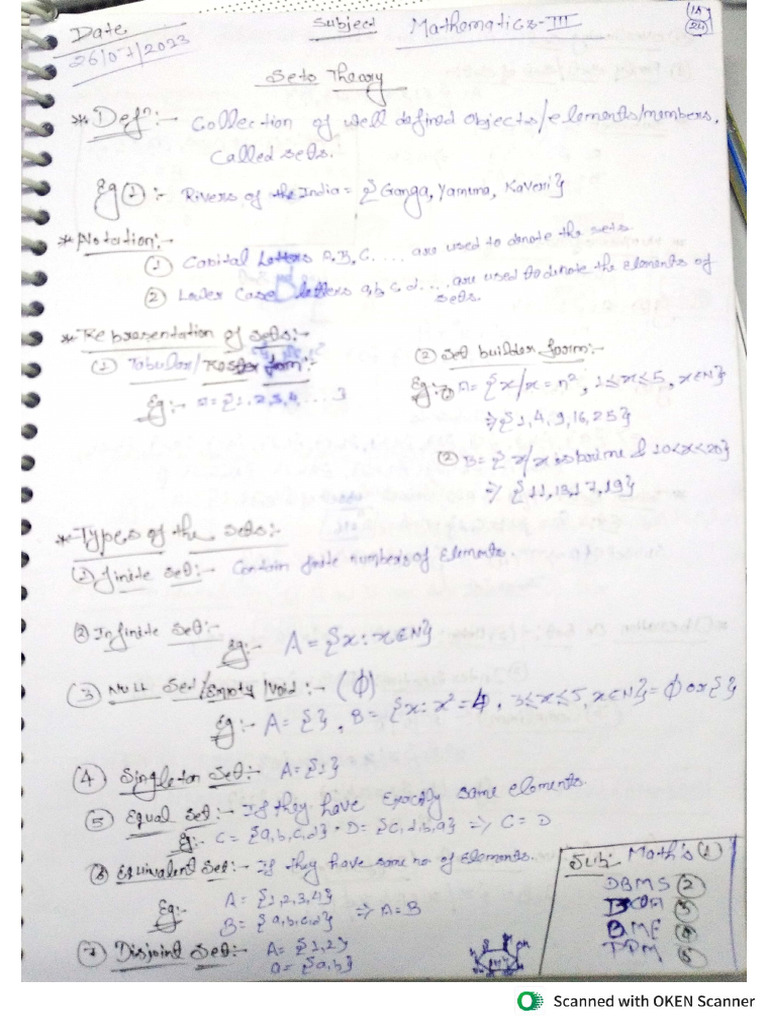 Date
26/07/2023
Subject Mathematics-III
Sets Theory
* Defⁿ:- Collection of well defined objects/elements/members,
Called sets.
Eg ①:- Rivers of the India = {Ganga, Yamuna, Kaveri}
* Notation:-
① Capital Letters A, B, C. ... are used to denote the sets.
② Lower Case letters a, b, c, d. ... are used to denote the elements of
sets.
* Representation of sets:-
① Tabular/Roster form:-
Eg:- A = {1, 2, 3, 4, ... }
② Set builder form:-
Eg:- ① A = {x/x = n², 1≤n≤5, x∈N}
⇒ {1, 4, 9, 16, 25}
② B = {x/x is prime & 10<x<20}
⇒ {11, 13, 17, 19}
* Types of the sets:-
① finite set:- Contain finite numbers of Elements.
② Infinite set:-
Eg:- A = {x : x∈N}
③ Null Set/Empty/Void:- (ϕ)
Eg:- A = { }, B = {x : x² = 4, 3≤x≤5, x∈N} = ϕ or { }
④ Singleton set:- A = {1}
⑤ Equal set:- If they have Exactly same elements.
Eg:- C = {a, b, c, d} · D = {c, d, b, a} ⇒ C = D
⑥ Equivalent set:- If they have same no of elements.
Eg:- A = {1, 2, 3, 4}
B = {a, b, c, d} ⇒ A = B
⑦ Disjoint Set:- A = {1, 2}
B = {a, b}
Sub: Math's ①
DBMS ②
③
④
PPM ⑤
Scanned with OKEN Scanner